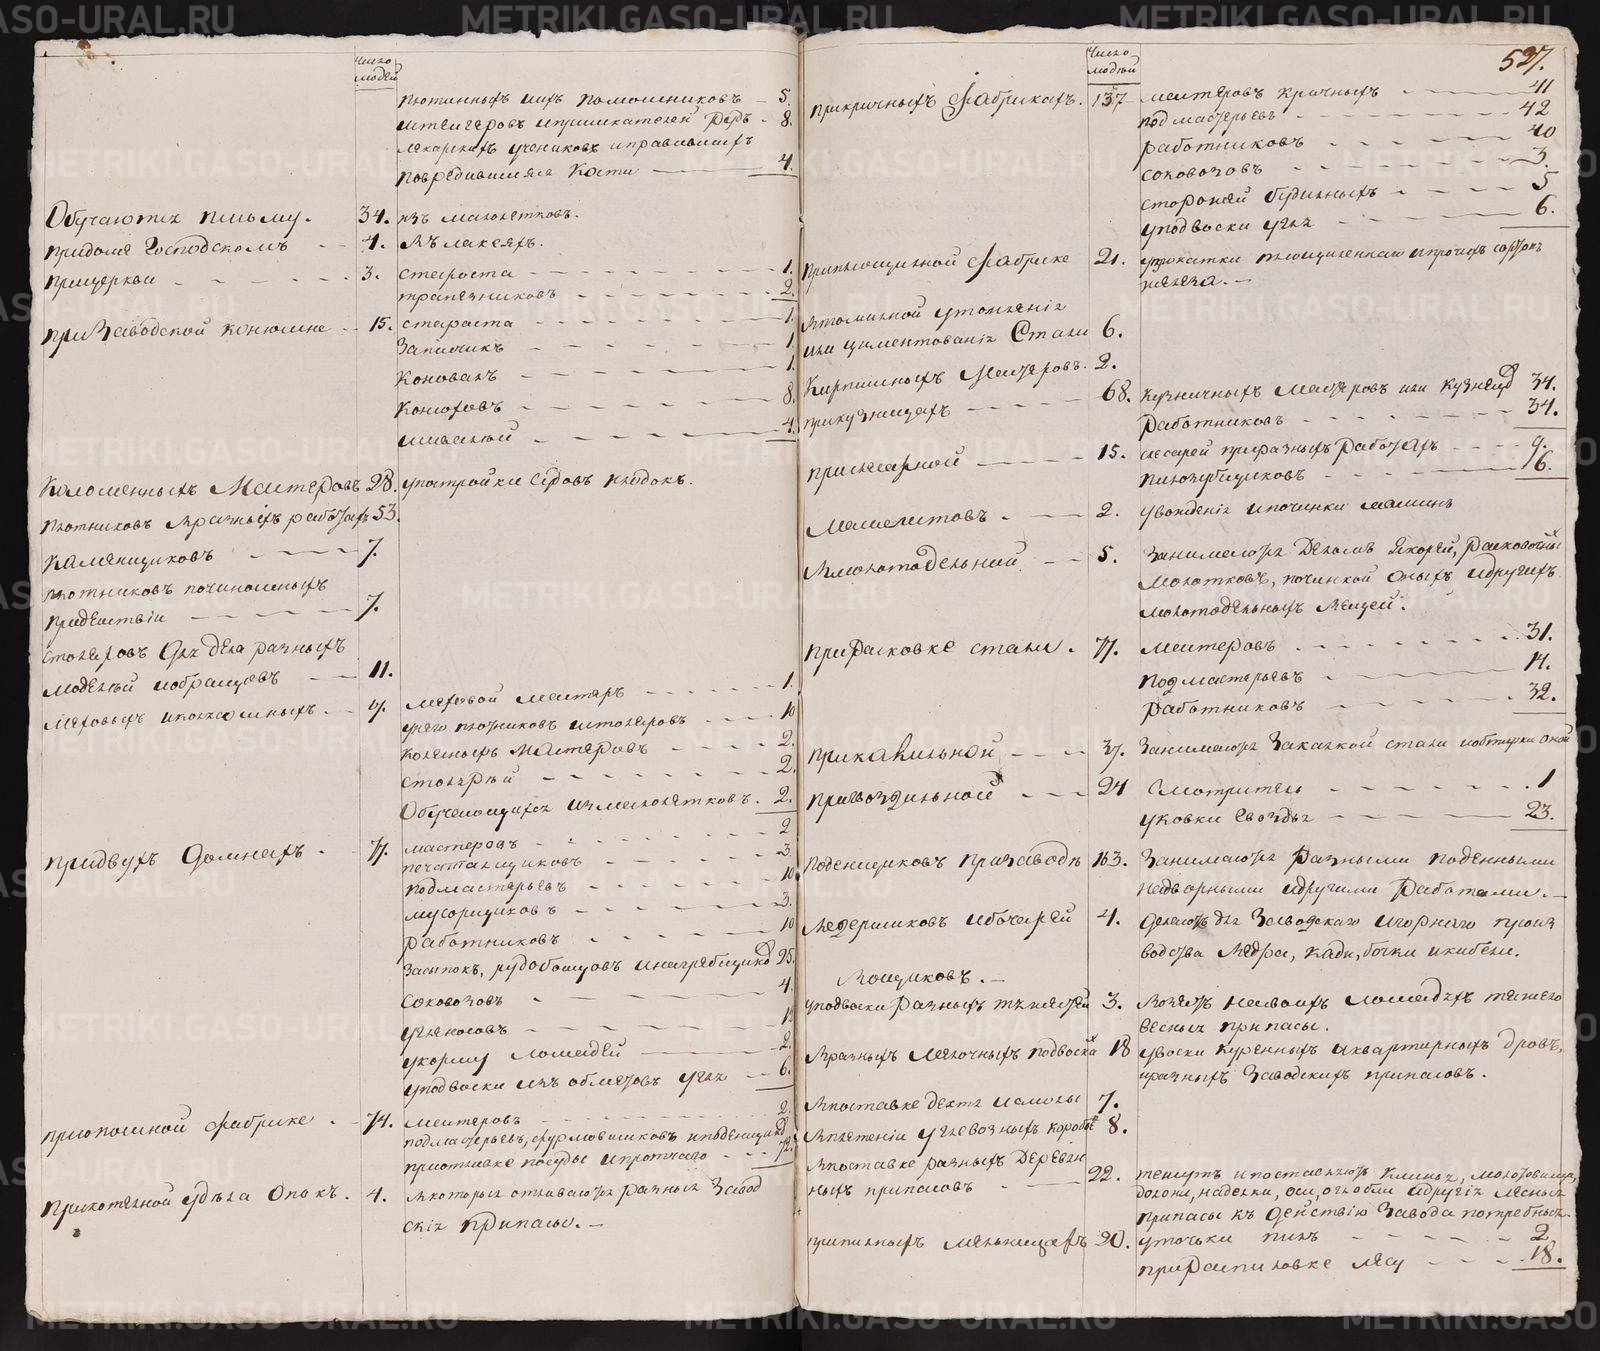 Число людей
плотинныхъ ихъ помошниковъ — 5.
штейгеровъ и приискателей рудъ - 8.
лекарскихъ учениковъ и правившихъ
повредившияся кости — 4.
Обучаются письму. 34. изъ малолетковъ.
при доме господскомъ — 4. въ лакеяхъ.
при церкви — 3. староста — 1.
трапезниковъ — 2.
при заводской конюшне — 15. староста — 1.
запищикъ — 1.
коновалъ — 1.
конюховъ — 8.
шивалной — 4.
Коломенныхъ Мастеровъ 28. упостройки судовъ и лодокъ.
плотниковъ в разныхъ работахъ 53.
каменщиковъ — 7.
плотниковъ починочныхъ
при действіи — 7.
столяровъ для дела разныхъ
моделей и образцовъ — 11.
меховыхъ и колесныхъ — 9. меховой мастеръ — 1.
у него плотниковъ и столяровъ — 10
колесныхъ мастеровъ — 2.
столярей — 2.
Обучающихся из малолетковъ. 2.
при двухъ домнахъ — 77. мастеровъ — 2
печатальщиковъ — 3.
подмастерьевъ — 10
мусорщиковъ — 3.
работниковъ — 10
засыпокъ, рудобойцовъ и нагребщиков 25.
соковозовъ — 4.
угленосовъ — 12
у корму лошадей — 2.
у подвоски изъ обметовъ угля — 6.
при опошной фабрике — 74. мастеровъ — 2.
подмастерьевъ, формовшиковъ и поденщиков
при отливке посуды и протчаго — 72.
при котельной у дела опокъ — 4. в которыя отливаются разныя завод
скія припасы. —
Число людей
527.
при кричныхъ фабрикахъ. 137 мастеровъ кричныхъ — 41
подмастерьевъ — 42
работниковъ — 40
соковозовъ — 3.
сторожей будильныхъ — 5
у подвоски угля — 6.
при плющильной фабрике 21. у прокатки плющиленнаго и прочихъ сортовъ
железа. —
в томильной у томленія
или цементованія стали 6.
Кирпишныхъ мастеровъ. 2.
при кузницахъ — 68. кузничныхъ мастеровъ или кузнецов 34.
работниковъ — 34.
при слесарной — 15. слесарей при разныхъ работахъ — 9.
пилозубщиковъ — 6.
Машинистовъ — 2. у вожденія и починки машинъ
В молотодельной — 5. занимаются деломъ якорей, расковочныхъ
молотковъ, починкой оныхъ и другихъ
молотодельныхъ вещей.
при расковке стали. 77. мастеровъ — 31.
подмастерьевъ — 14.
работниковъ — 32.
при калильной — 37. занимаются закалкой стали и обтирки оной
при гвоздильной — 24 смотритель — 1
у ковки гвоздья — 23.
Поденщиковъ при заводе 163. занимаются разными поденными
надворными и другими работами. —
Ведершиковъ и бочарей 4. делаютъ для заводскаго и горнаго произ
водства ведра, кади, бочки и кибели.
Возщиковъ. —
у подвоски разныхъ тяжестей 3. возятъ на своихъ лошадяхъ тяжело
весныя припасы.
в разныхъ мелочныхъ подвоскахъ 18 у воски куренныхъ и квартирныхъ дровъ,
и разныхъ заводскихъ припасовъ.
в поставке дехтя и смолы 7.
в плетеніи углевозныхъ коробов 8.
в поставке разныхъ деревян
ныхъ припасовъ — 22. тешутъ и поставляютъ клинья, молотовища,
доски, наделки, оси, оглобли и другія лесныя
припасы къ действію завода потребныя.
при пильныхъ мельницахъ 20. у точьки пилъ — 2
при распиловке лесу — 18.
METRIKI.GASO-URAL.RU